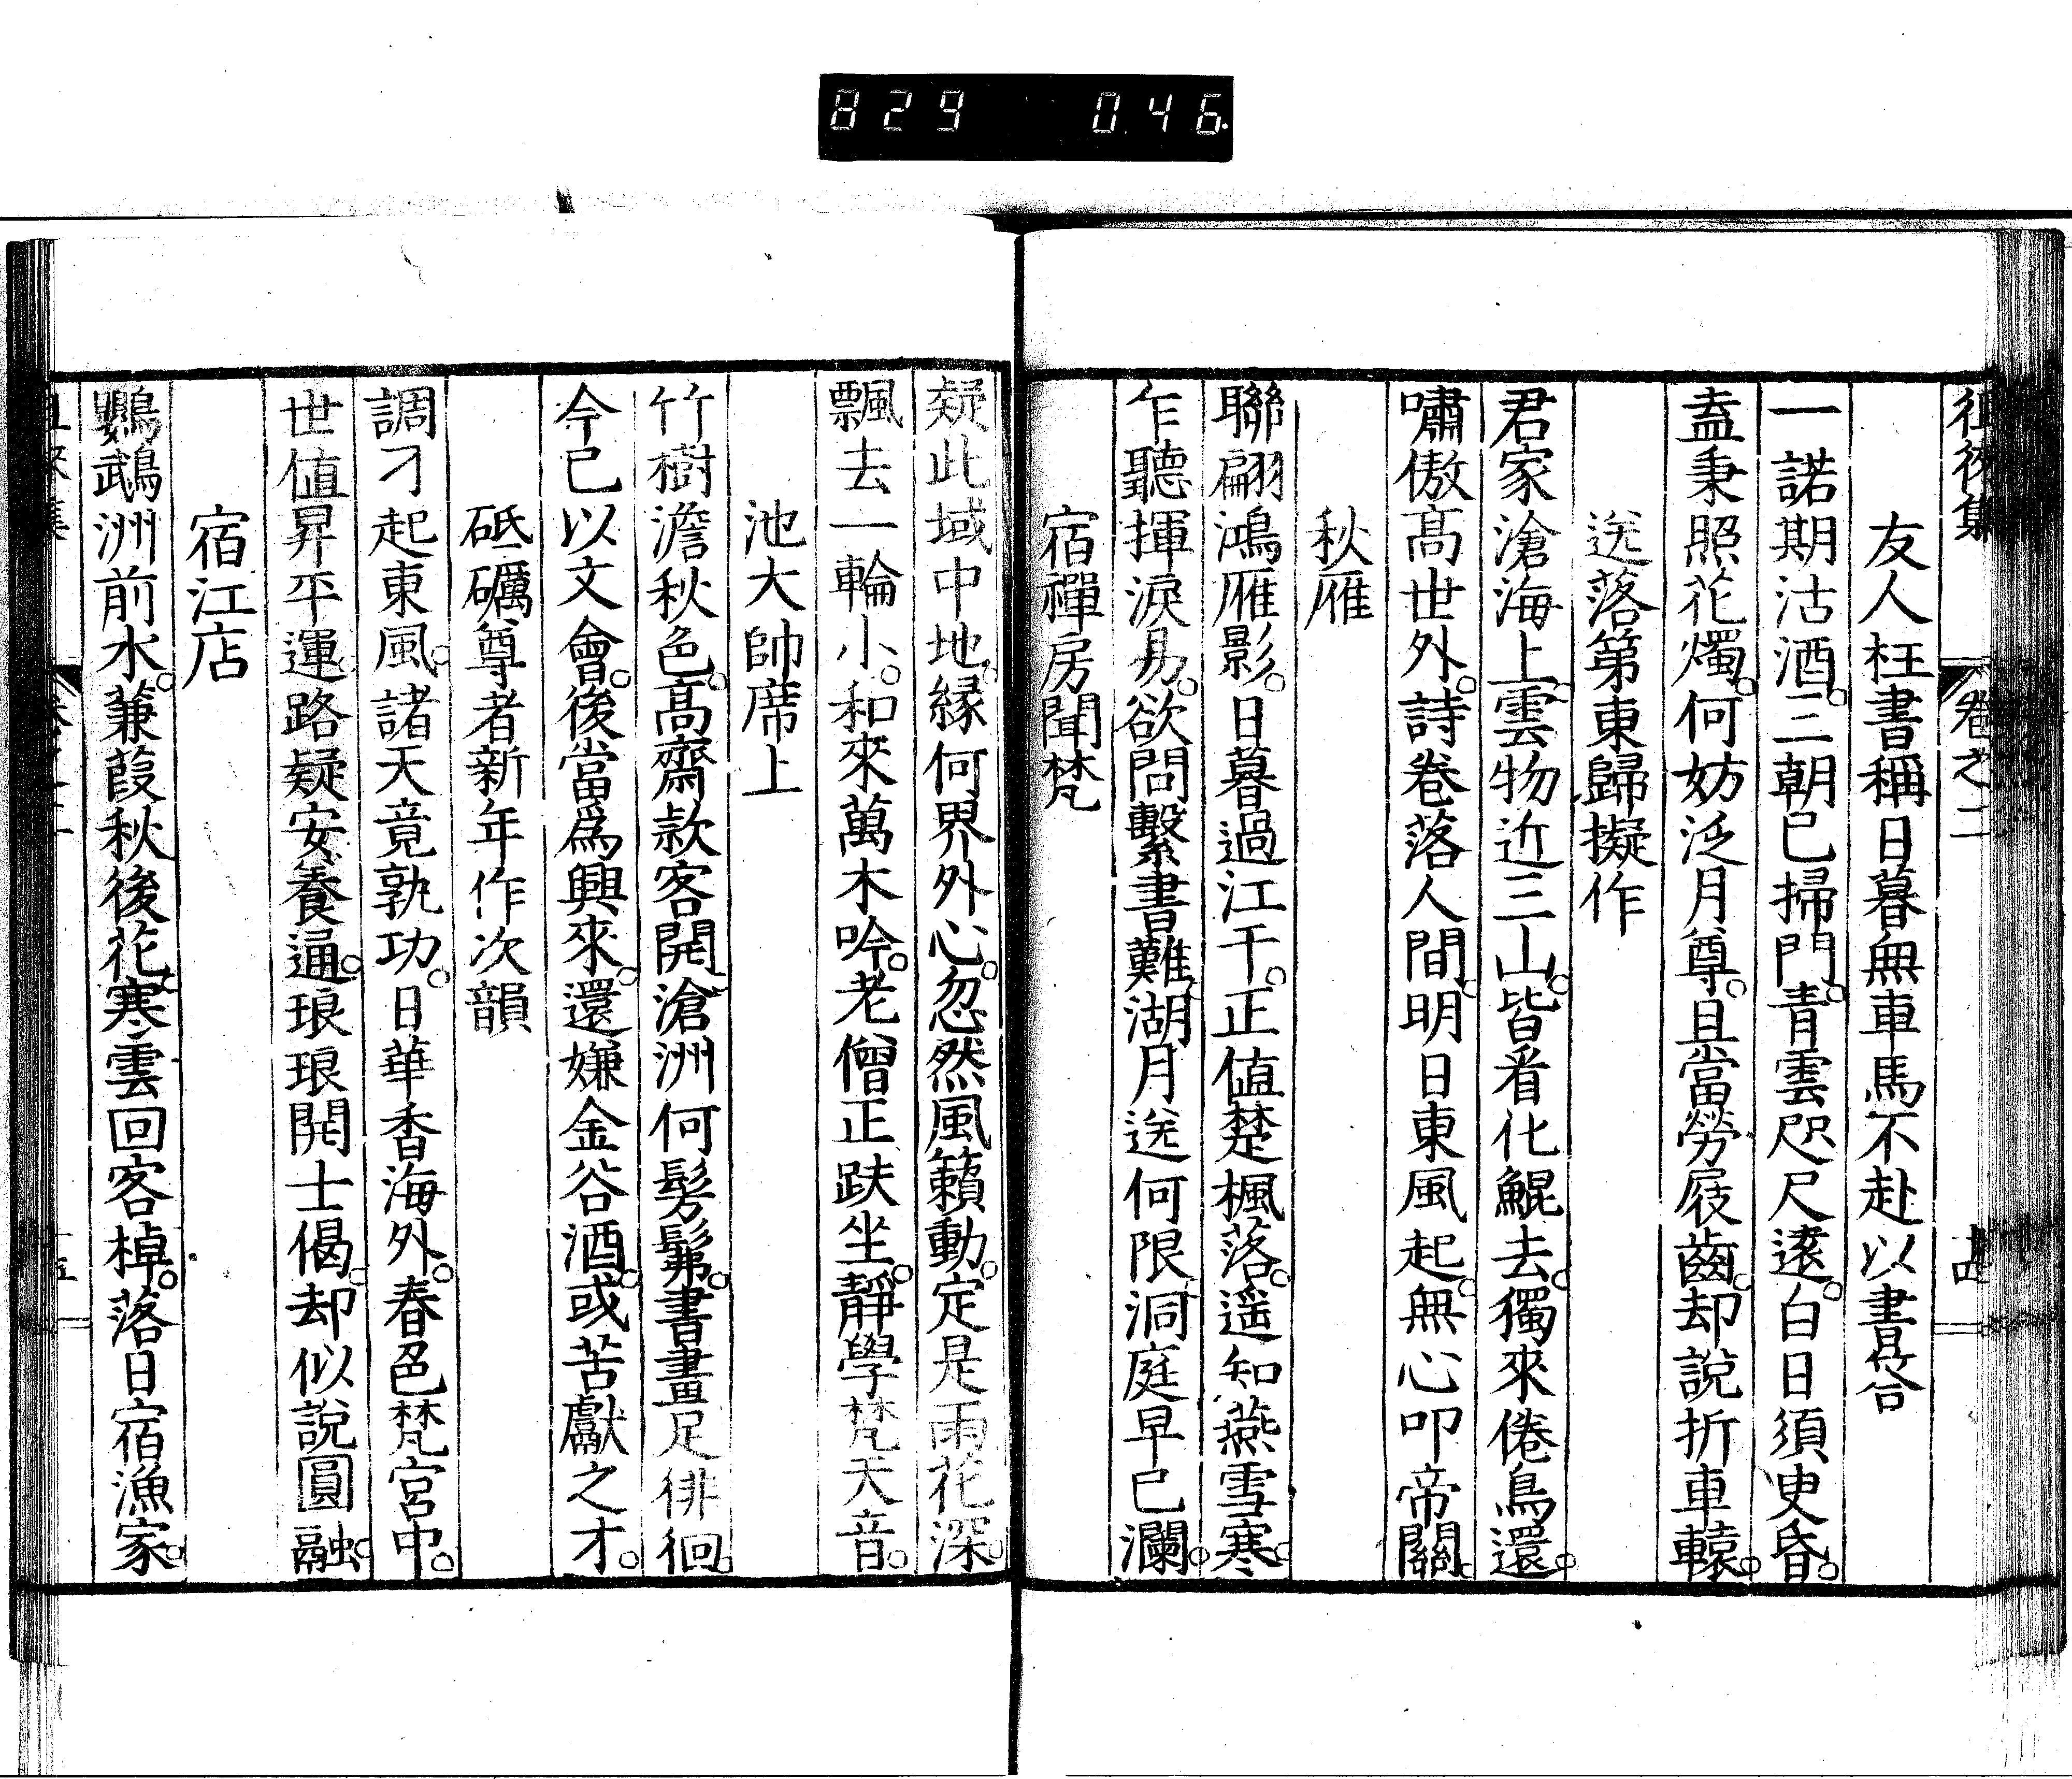 829 046.
徂徠集 卷之二 十四
友人枉書稱日暮無車馬不赴以書答
一諾期沽酒。三朝已掃門。青雲咫尺遠。白日須臾昏。
盍秉照花燭。何妨泛月尊。且當勞屐齒。却說折車轅。
送落第東歸擬作
君家滄海上雲物近三山。皆看化鯤去。獨來倦鳥還。
嘯傲高世外。詩卷落人間。明日東風起。無心叩帝關。
秋雁
聯翩鴻雁影。日暮過江干。正值楚楓落。遥知燕雪寒。
乍聽揮淚易。欲問繫書難湖月送何限洞庭早已瀾。
宿禪房聞梵
疑此域中地。緣何界外心。忽然風籟動。定是雨花深。
飄去一輪小。和來萬木吟。老僧正趺坐。靜學梵天音。
池大帥席上
竹樹澹秋色。高齋款客開滄洲何髣髴。書畫足徘徊。
今已以文會。後當爲興來。還嫌金谷酒。或苦獻之才。
砥礪尊者新年作次韻
調刁起東風。諸天竟孰功。日華香海外。春色梵宮中。
世值昇平運路疑安養通。琅琅開士偈。却似說圓融。
宿江店
鸚鵡洲前水。蒹葭秋後花寒雲回客棹。落日宿漁家。